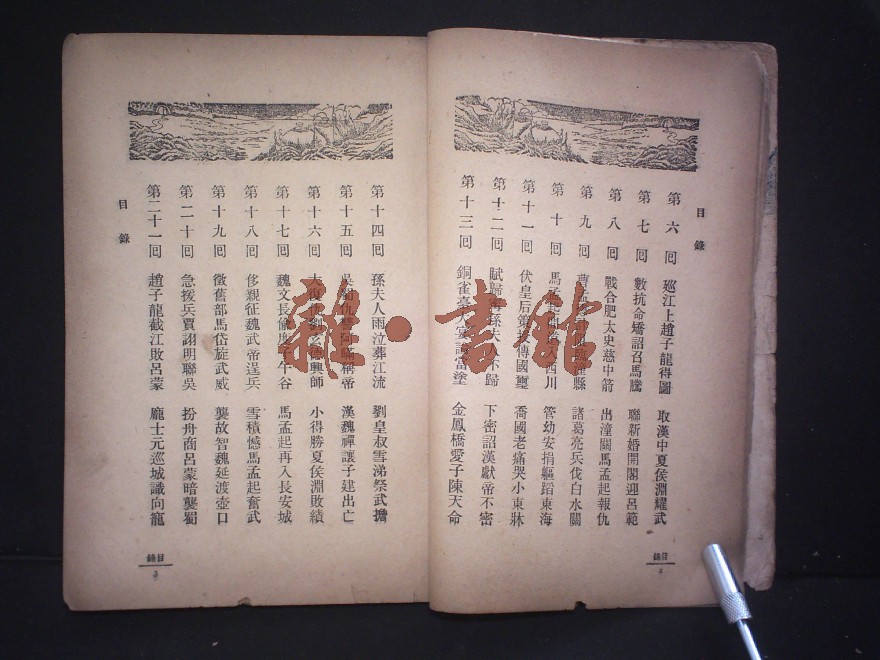 目錄
第六回 巡江上趙子龍得圖 取漢中夏侯淵耀武
第七回 數抗命矯詔召馬騰 聯新婚開閣迎呂範
第八回 戰合肥太史慈中箭 出潼關馬孟起報仇
第九回 曹孟 縣 諸葛亮兵伐白水關
第十回 馬孟起 入西川 管幼安捐軀蹈東海
第十一回 伏皇后 傳國璽 喬國老痛哭小東牀
第十二回 賦歸 孫夫人不歸 下密詔漢獻帝不密
第十三回 銅雀臺 當塗 金鳳橋愛子陳天命
目錄
2
第十四回 孫夫人雨泣葬江流 劉皇叔雪涕祭武擔
第十五回 吳 仇 阿瞞稱帝 漢魏禪讓子建出亡
第十六回 大復仇劉玄德興師 小得勝夏侯淵敗績
第十七回 魏文長偷度子午谷 馬孟起再入長安城
第十八回 侈親征魏武帝逞兵 雪積憾馬孟起奮武
第十九回 徵舊部馬岱旋武威 襲故智魏延渡壺口
第二十回 急援兵賈詡明聯吳 扮舟商呂蒙暗襲蜀
第二十一回 趙子龍截江敗呂蒙 龐士元巡城識向寵
目錄
目錄
3
雜·書館